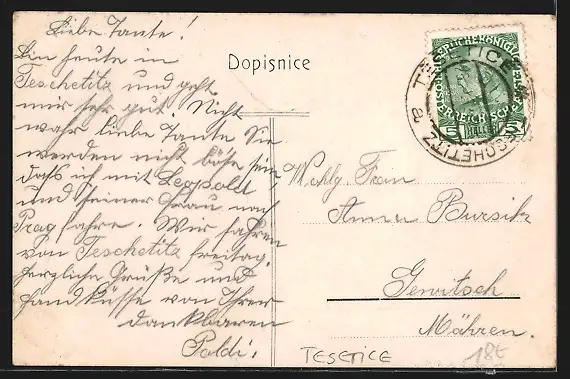 Liebe Tante!
Bin heute in
Teschetitz und geht
mir sehr gut. Nicht
wahr liebe Tante Sie
werden nicht böse sein,
daß ich mit Leopold
und seiner Frau nach
Prag fahre. Wir fahren
von Teschetitz freitag.
Herzliche Grüße und
Handküsse von Ihrer
dankbaren
Poldi.
Dopisnice
TĚŠETICE
TESCHETITZ
a
5 HELLER 5
Wohlg. Frau
Anna Bursik
Gewitsch
Mähren.
TESETICE
18t